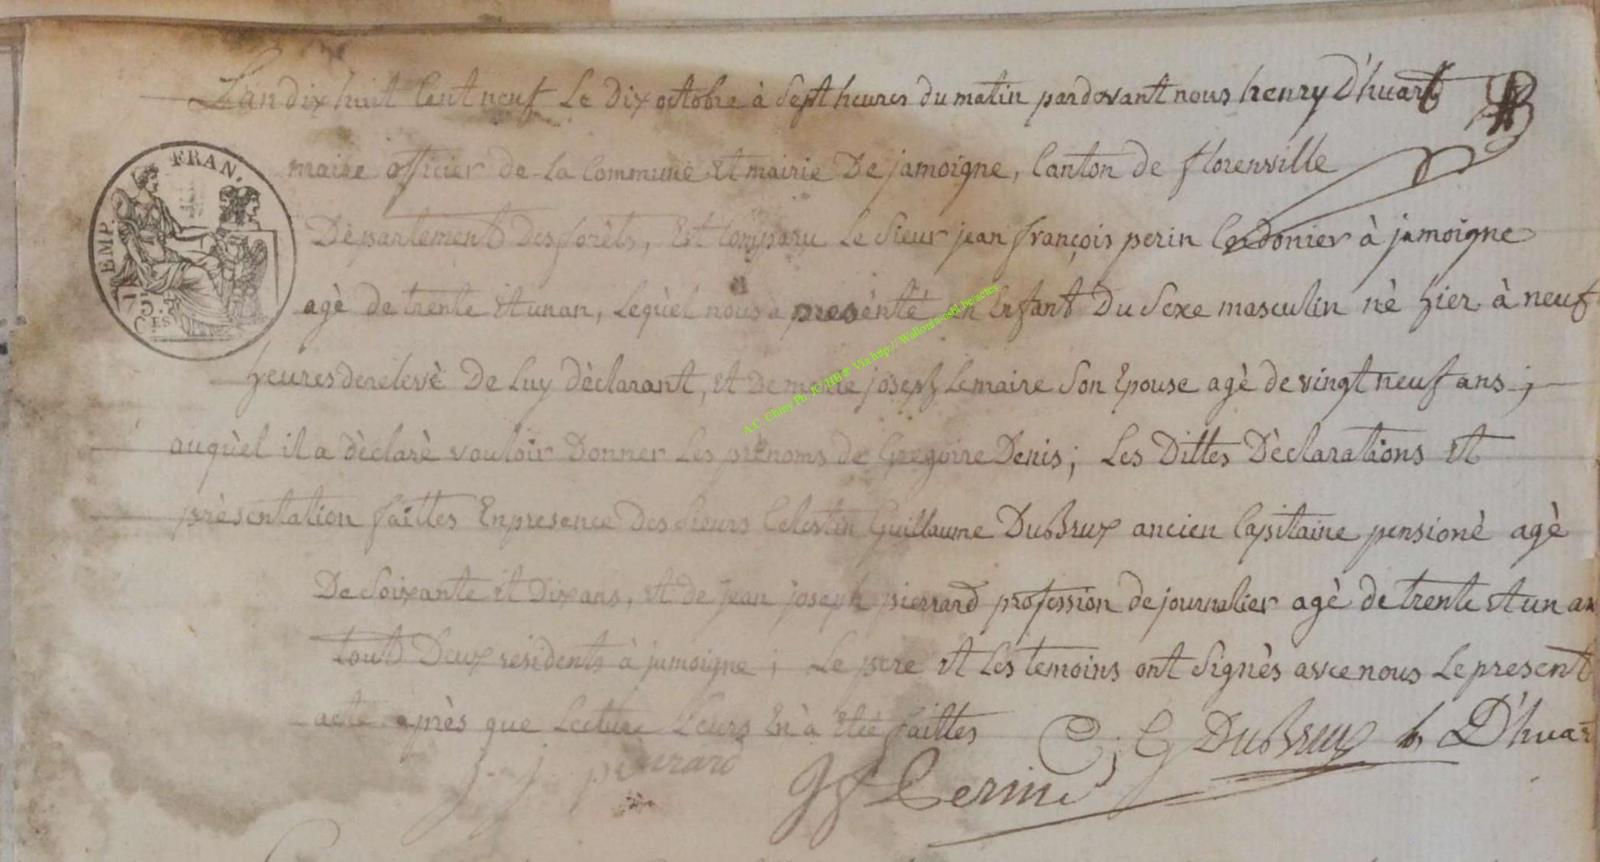 L'an dix huit Cent neuf Le Dix octobre à Sept heures du matin pardevant nous henry D'huart
maire officier de La Commune et mairie De jamoigne, Canton de florenville
EMP. FRAN.
75. CES
Département Des forêts, Est Comparu Le Sieur jean françois perin Cordonier à jamoigne
agè de trente et un an, Lequel nous a presénté un Enfant Du Sexe masculin nè hier à neuf
heures de relevè De Luy dèclarant, et De marie joseph Lemaire Son Epouse agè de vingt neuf ans ;
auquèl il a dèclarè vouloir Donner Les prènoms de Gregoire Denis ; Les Dittes Dèclarations et
prèsentation faittes En presence Des Sieurs Celestin Guillaume DuBrux ancien Capitaine pensionè agè
De Soixante et Dix ans, et de jean joseph pierrard profession de journalier agè de trente et un an
tout Deux residents à jamoigne ; Le pere et Les temoins ont Signès avec nous Le present
acte après que Lecture Leurs En à Etée faittes
C ; G DuBrux h D'huar
j. j. pierrard
jf Perin
A.C. Chiny Ph. JC/HB @ Via http// Wallonia-asbl.be/actes